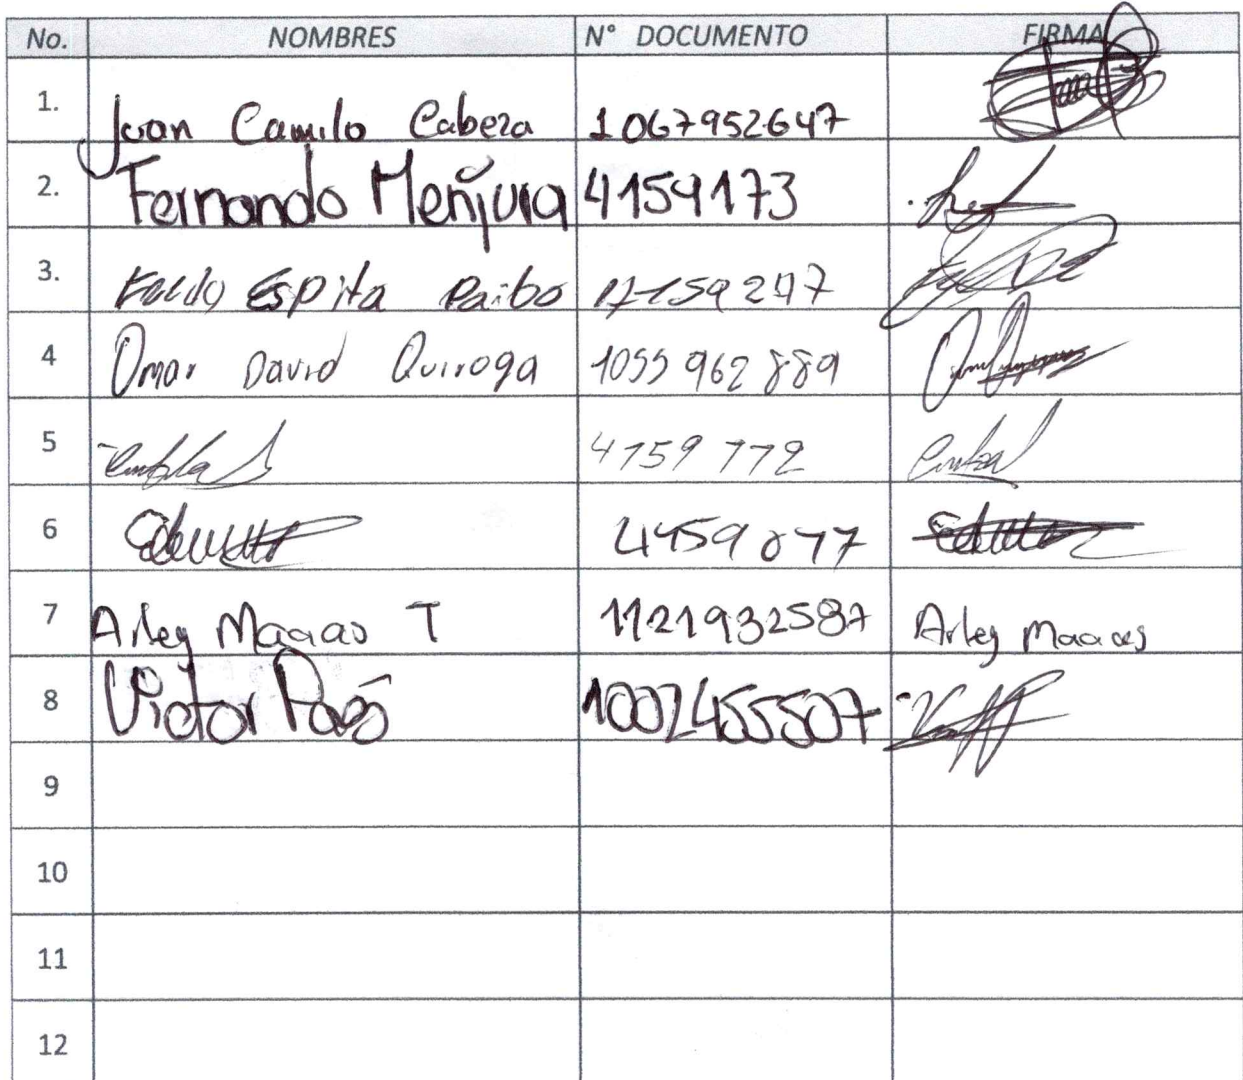 No. NOMBRES N° DOCUMENTO FIRMA
1. Juan Camilo Cabeza 1067952647
2. Fernando Meñjura 4159173
3. Espita Paibo
4 Omar David Quiroga 1055962889
5 4159172
6 4159077
7 Arley Macias T 1121932587 Arley Macias
8 Victor Paéz 1002455507
9
10
11
12